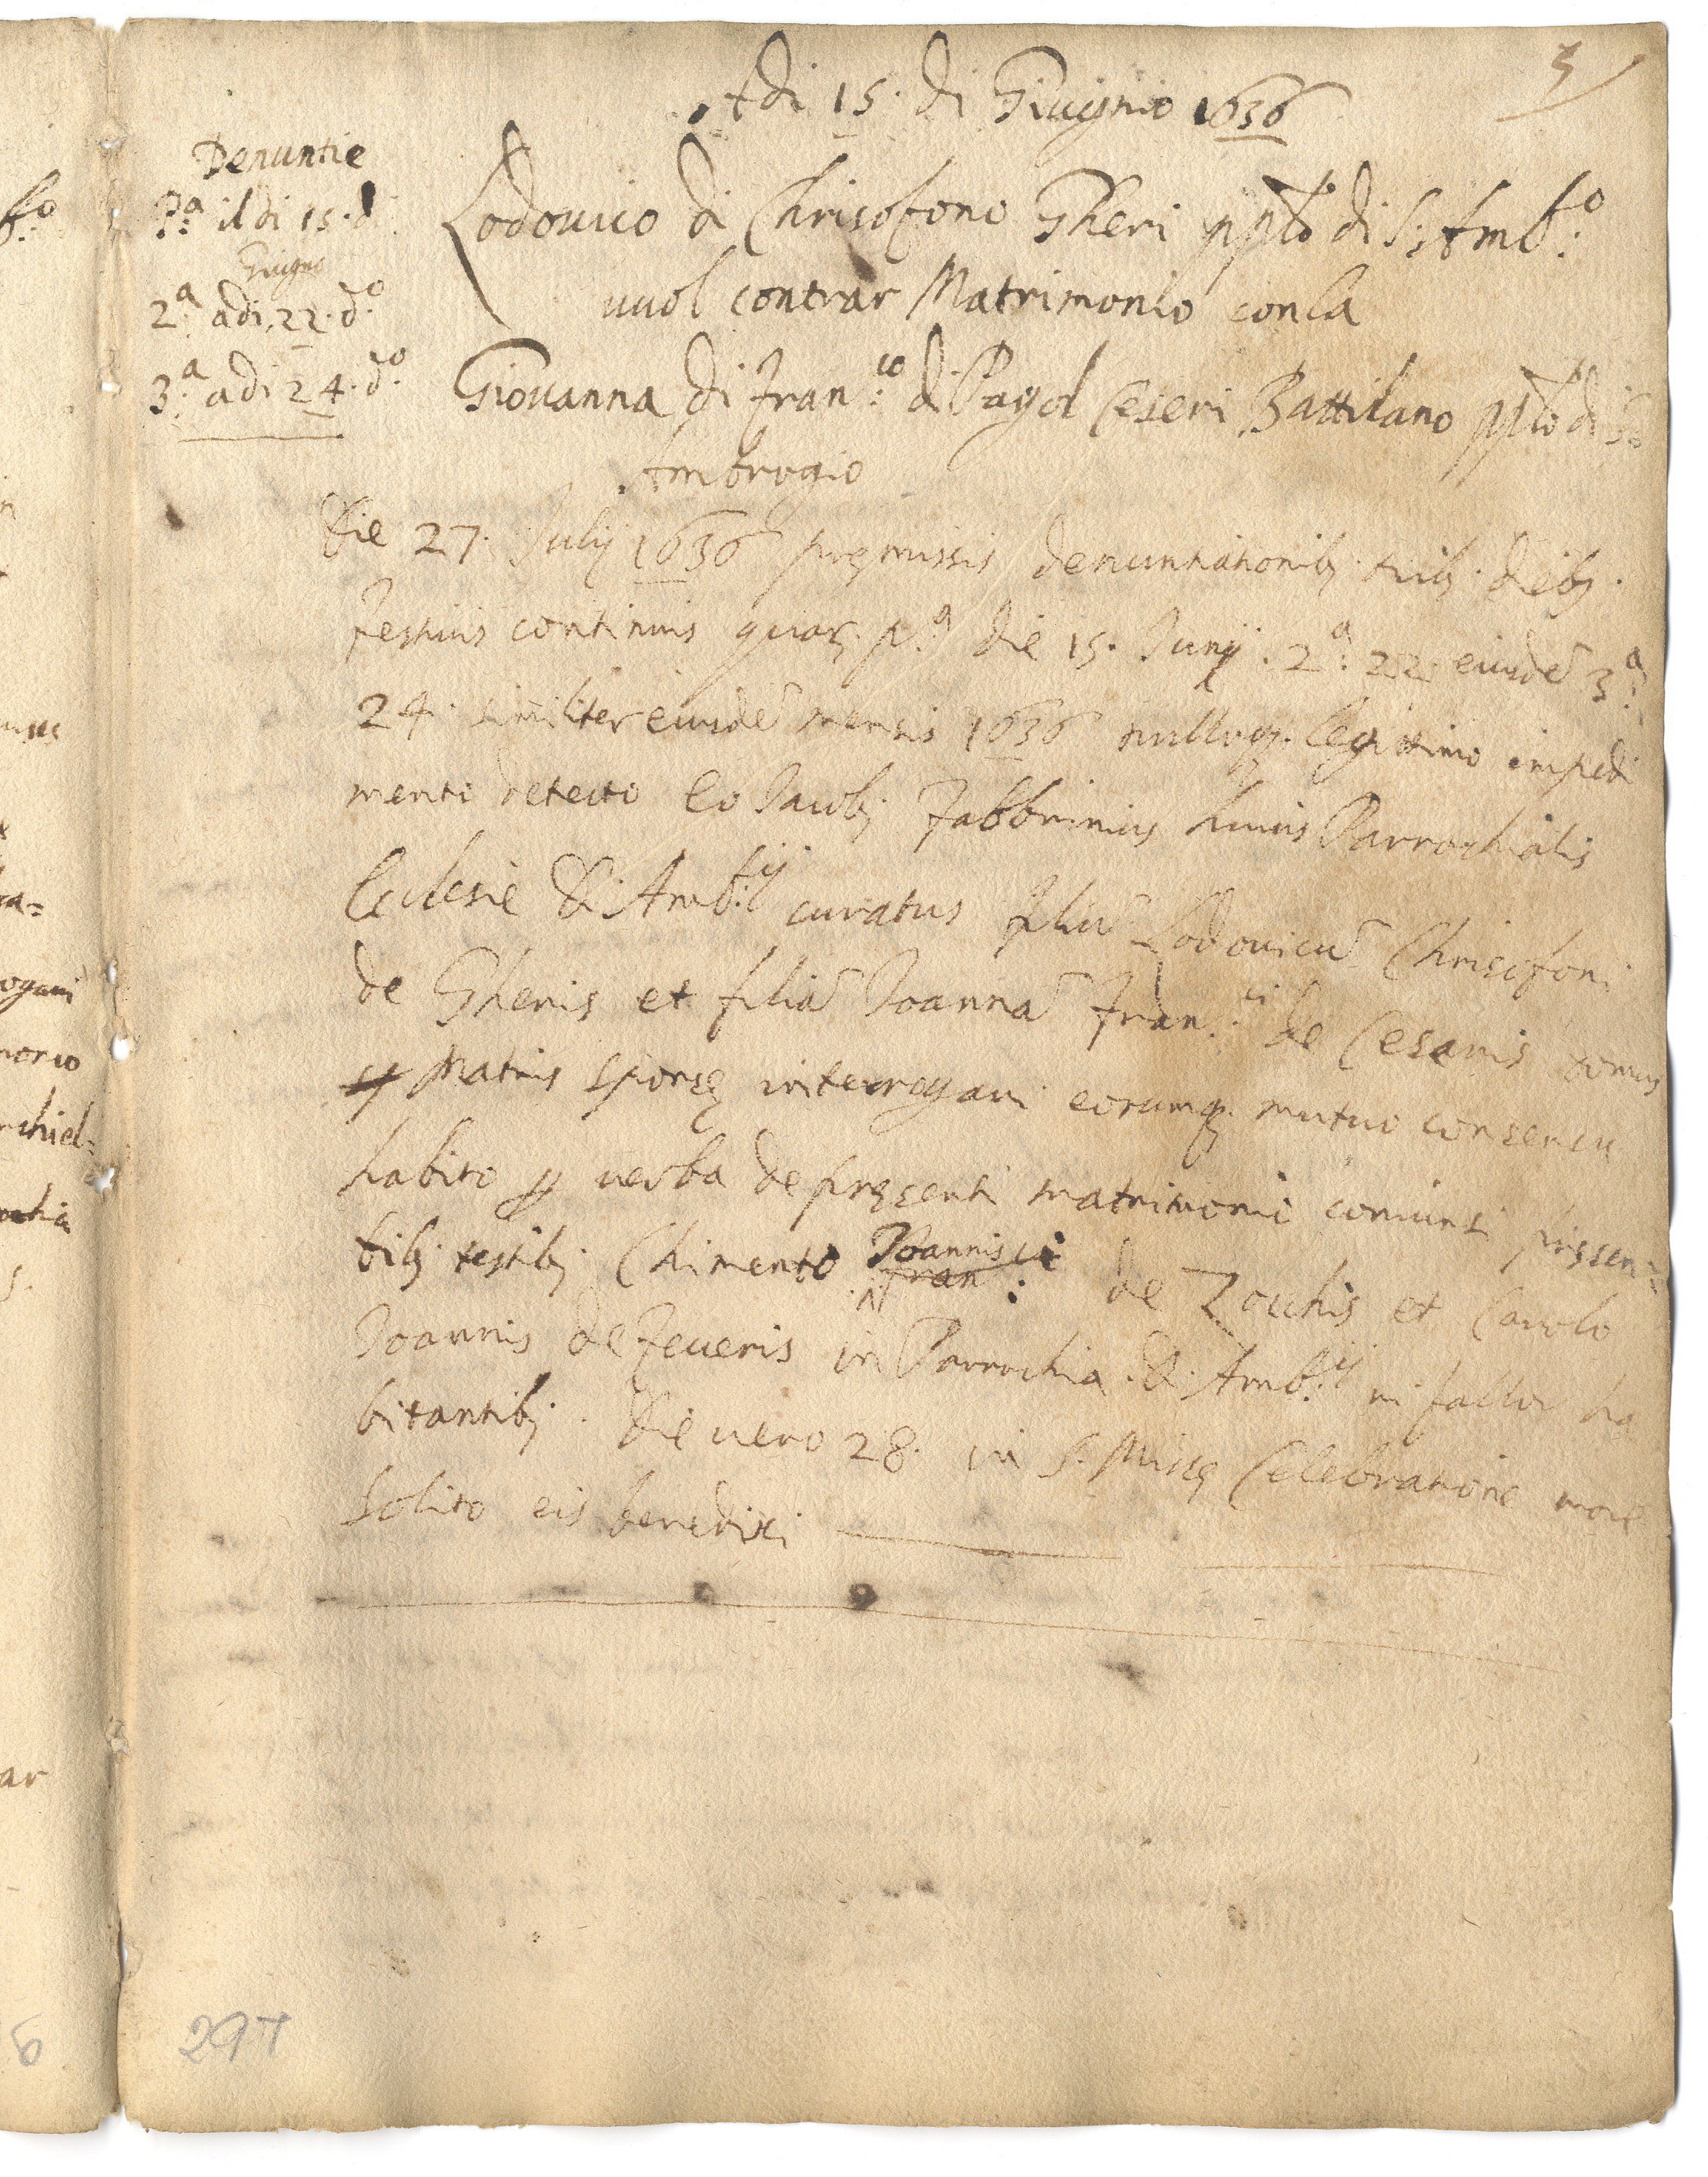 5
Adi 15. di Giugnio 1636
Denuntie
P.a il di 15. d
Giugno
2.a adi 22. d.o
3.a adi 24. d.o
Lodouico di Chrisofono Gheri pplo di S. Amb.o
uuol contrar Matrimonio con la
Giouanna di Fran.co di Pagol Ceseri Battilano pplo di S.o
Ambrogio
Die 27. Julij 1636 premissis denuntiationib; trib; dieb;
festiuis continuis quar. p.a die 15. Junij. 2.a 22. eiusdẽ 3.a
24. similiter eiusdẽ mensis 1636 nulloq; legittimo impedi
mento detecto Eo Jacob; Fabbrinius huius Parrochialis
Ecclesie S. Amb.ij curatus filiũ Lodouicũ Chrisofoni
de Gheris et filiã Joannã Fran.ci de Cesaris domus
Matris sponsę interrogaui eorumq; mutuo consensu
habito p uerba de presenti matrimonio coniunxi presen=
tib; testib; Chimento Joannis
Fran.ci de Zocchis et Carolo
Joannis de Feueris in Parrochia S. Amb.ij ni fallor ha
bitantib; Die uero 28. in S. Missę Celebratione more
solito eis benedixi
297